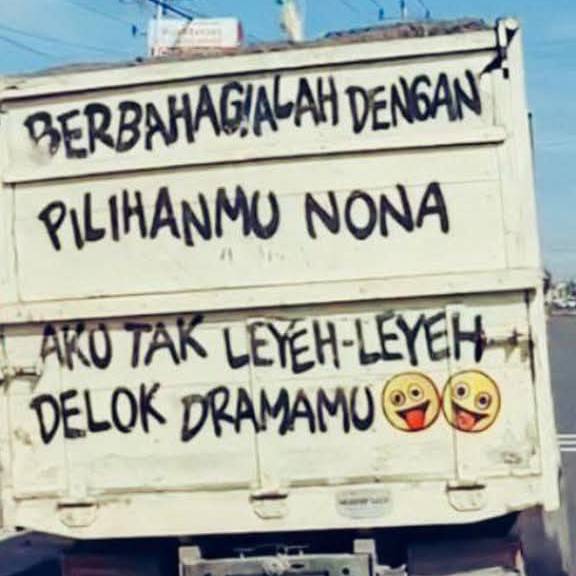 BERBAHAGIALAH DENGAN
PILIHANMU NONA
AKU TAK LEYEH-LEYEH
DELOK DRAMAMU